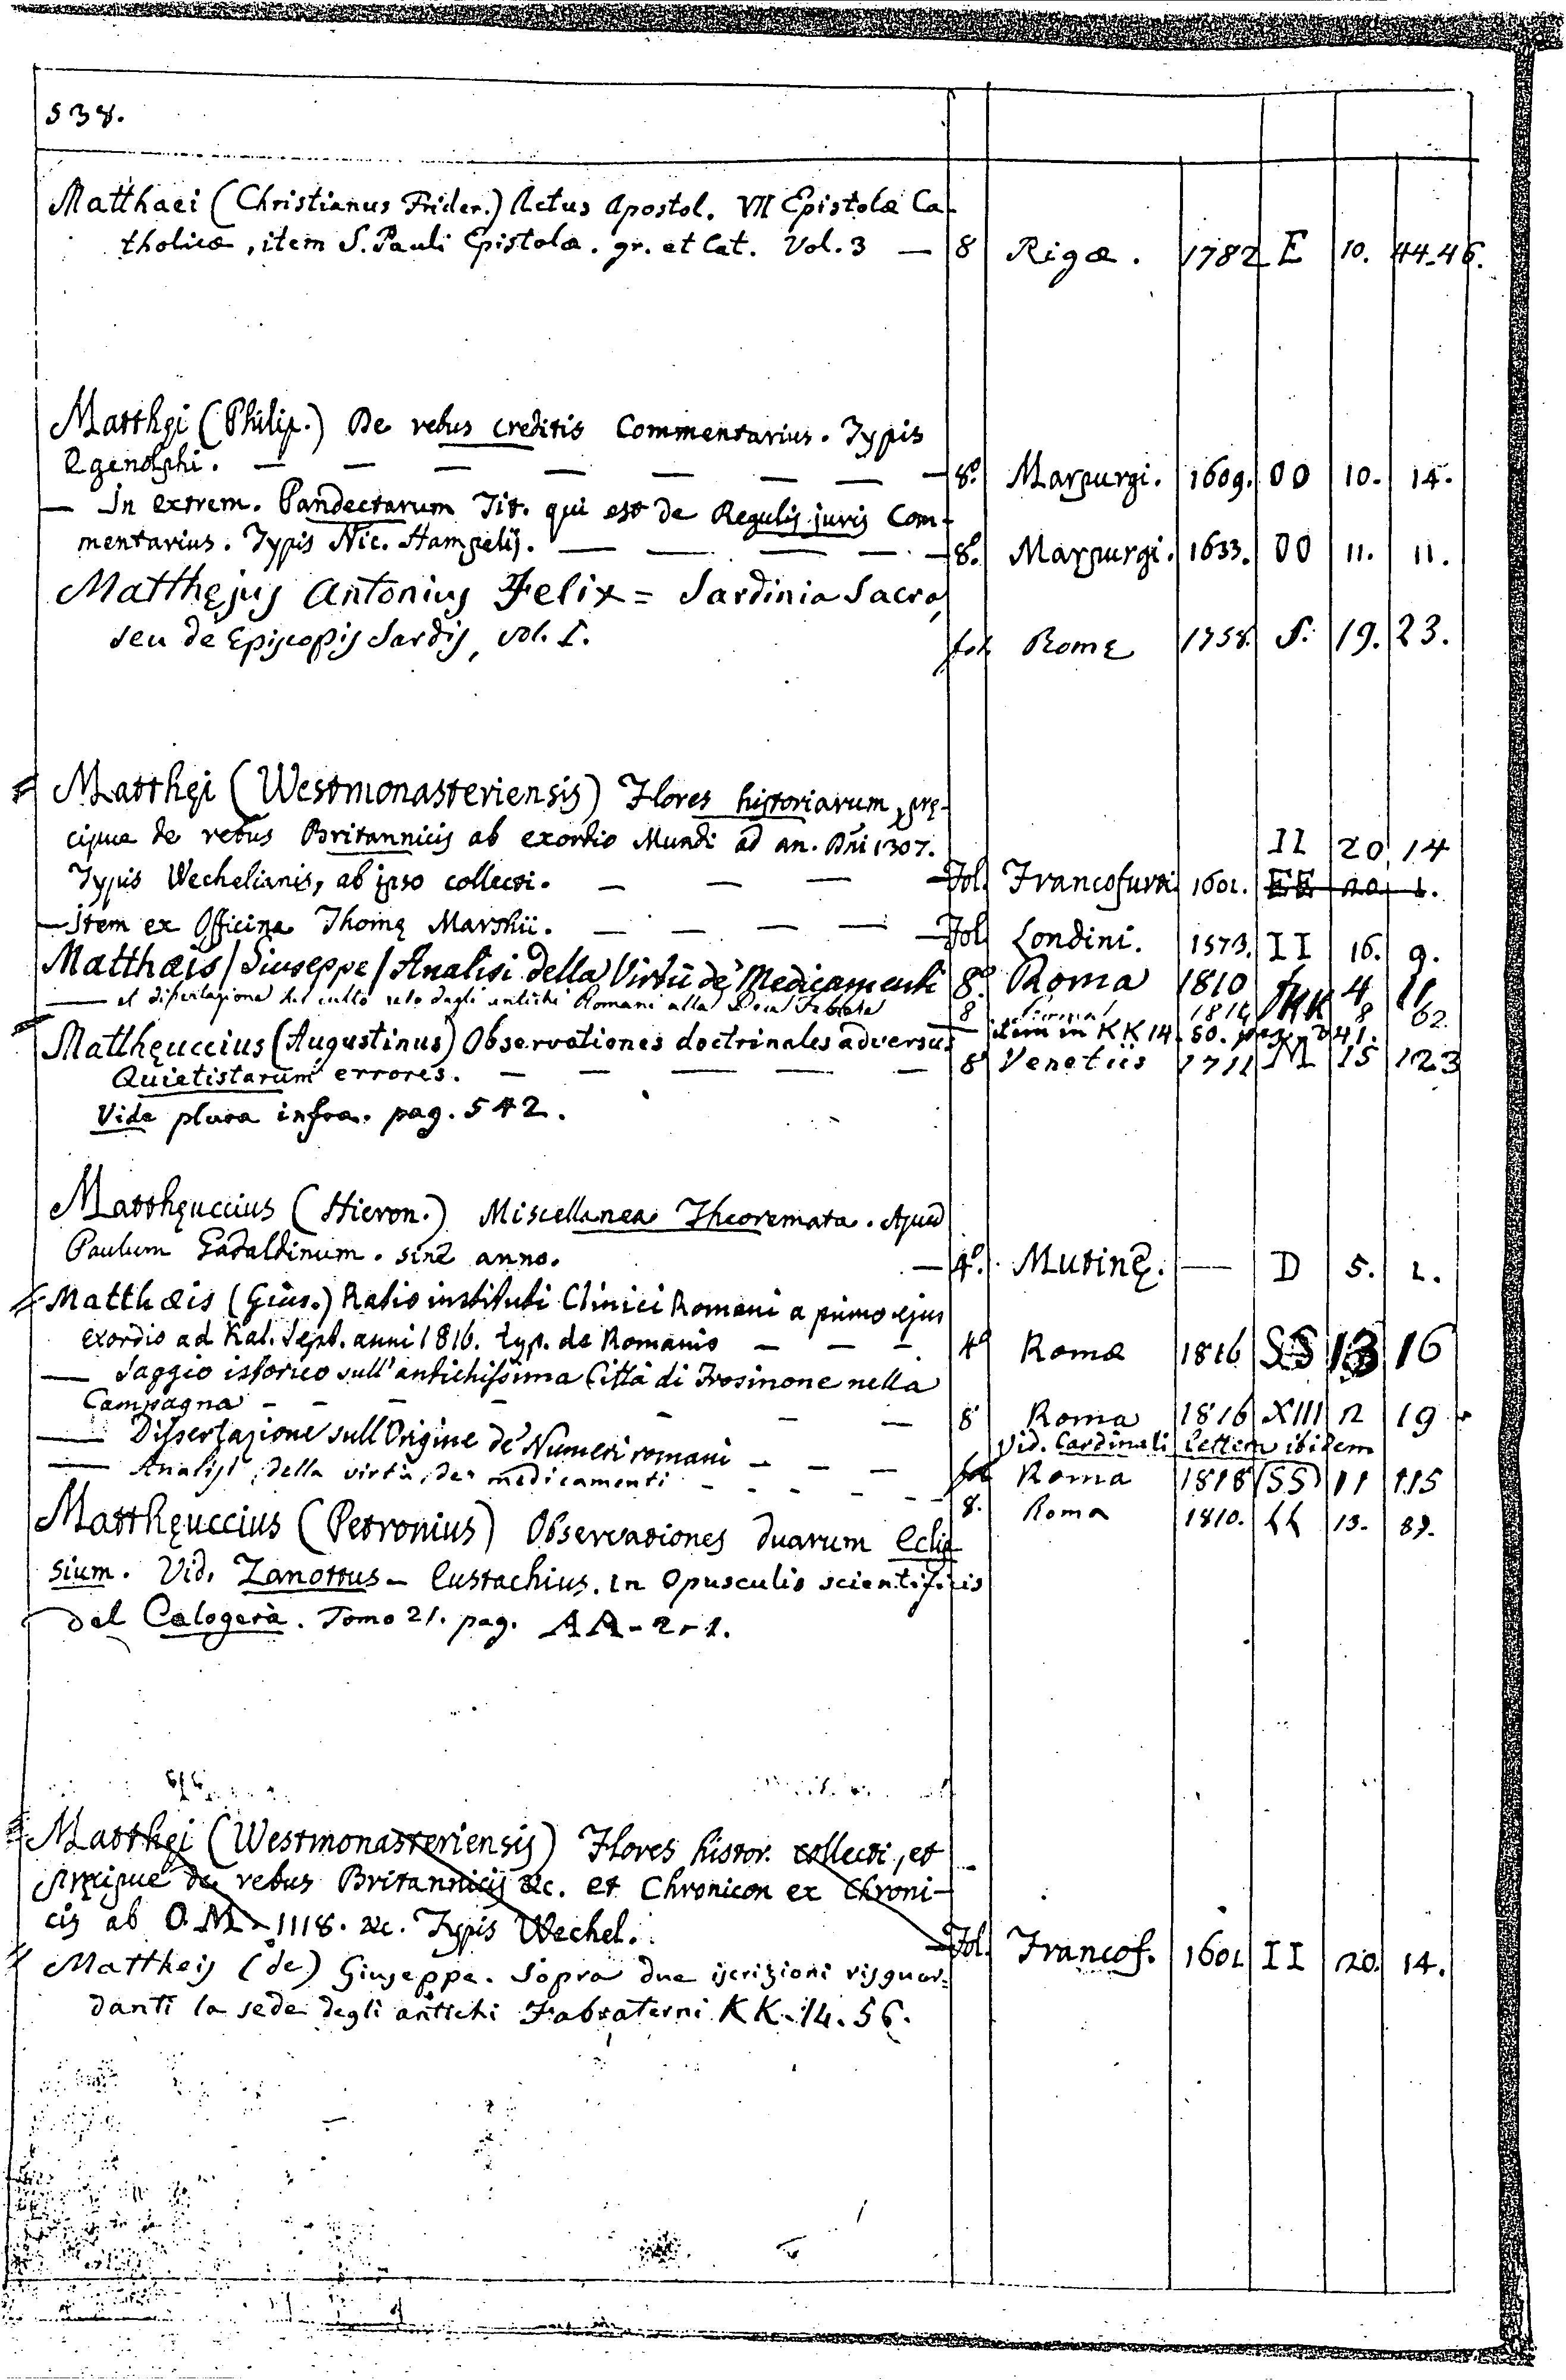 538.
Matthaei (Christianus Frider.) Actus Apostol. VII Epistolæ Ca-
tholicæ, item S. Pauli Epistolæ. gr. et Lat. Vol. 3 — 8 Rigæ. 1782 E 10. 44-46.
Matthęi (Philip.) De rebus creditis Commentarius. Typis
Egenolphi. — — — — — — — 8.º Marpurgi. 1609. OO 10. 14.
— In extrem. Pandectarum Tit. qui est de Regulis juris Com-
mentarius. Typis Nic. Hampelij. — — — — 8.º Marpurgi. 1633. OO 11. 11.
Matthęjus Antonius Felix = Sardinia Sacra,
seu de Episcopis Sardis, vol. I. fol. Romę 1758. S. 19. 23.
Matthęi (Westmonasteriensis) Flores historiarum, prę-
cipue de rebus Britannicis ab exordio Mundi ad an. Dñi 1307. II 20 14
Typis Wechelianis, ab ipso collecti. — — — Fol. Francofurti 1601. EE 20 1.
— Item ex Officina Thomę Marshii. — — — — Fol. Londini. 1573. II 16. 9.
Matthæis / Giuseppe / Analisi della Virtù de' Medicamenti 8.º Roma 1810 4 11
— del culto reso dagli antichi Romani alla Dea Febbre 8 1814 KK 8 62.
item in KK 14. 50. pag. 241.
Matthęuccius (Augustinus) Observationes doctrinales adversus
Quietistarum errores. — — — — — 8º Venetiis 1711 M 15 123
Vide plura infra. pag. 542.
Matthęuccius (Hieron.) Miscellanea Theoremata. Apud
Paulum Gadaldinum. sine anno. — 4.º Mutinę. — D 5. 2.
Matthæis (Gius.) Ratio instituti Clinici Romani a primo ejus
exordio ad Kal. Sept. anni 1816. typ. de Romanis — — — 4º Romæ 1816 SS 13 16
— Saggio istorico sull'antichissima Città di Frosinone nella
Campagna - - - - - — 8º Roma 1816 XIII 12 19
— Dissertazione sull'Origine de' Numeri romani — — — Vid. Cardinali Lettera ibidem
fol Roma 1818 (SS) 11 115
— Analisi della virtù dei medicamenti - - - - - - 8. Roma 1810. LL 13. 89.
Matthęuccius (Petronius) Observationes duarum Eclip-
sium. Vid. Zanottus - Eustachius. in Opusculis scientificis
del Calogerà. Tomo 21. pag. AA-2-1.
Matthęi (Westmonasteriensis) Flores histor. collecti, et
Pręcipue de rebus Britannicis &c. et Chronicon ex Chroni-
cis ab O.M. 1118. &c. Typis Wechel. — Fol. Francof. 1601 II 20. 14.
Mattheis (de) Giuseppe. Sopra due iscrizioni risguar-
danti la sede degli antichi Fabraterni KK. 14. 56.